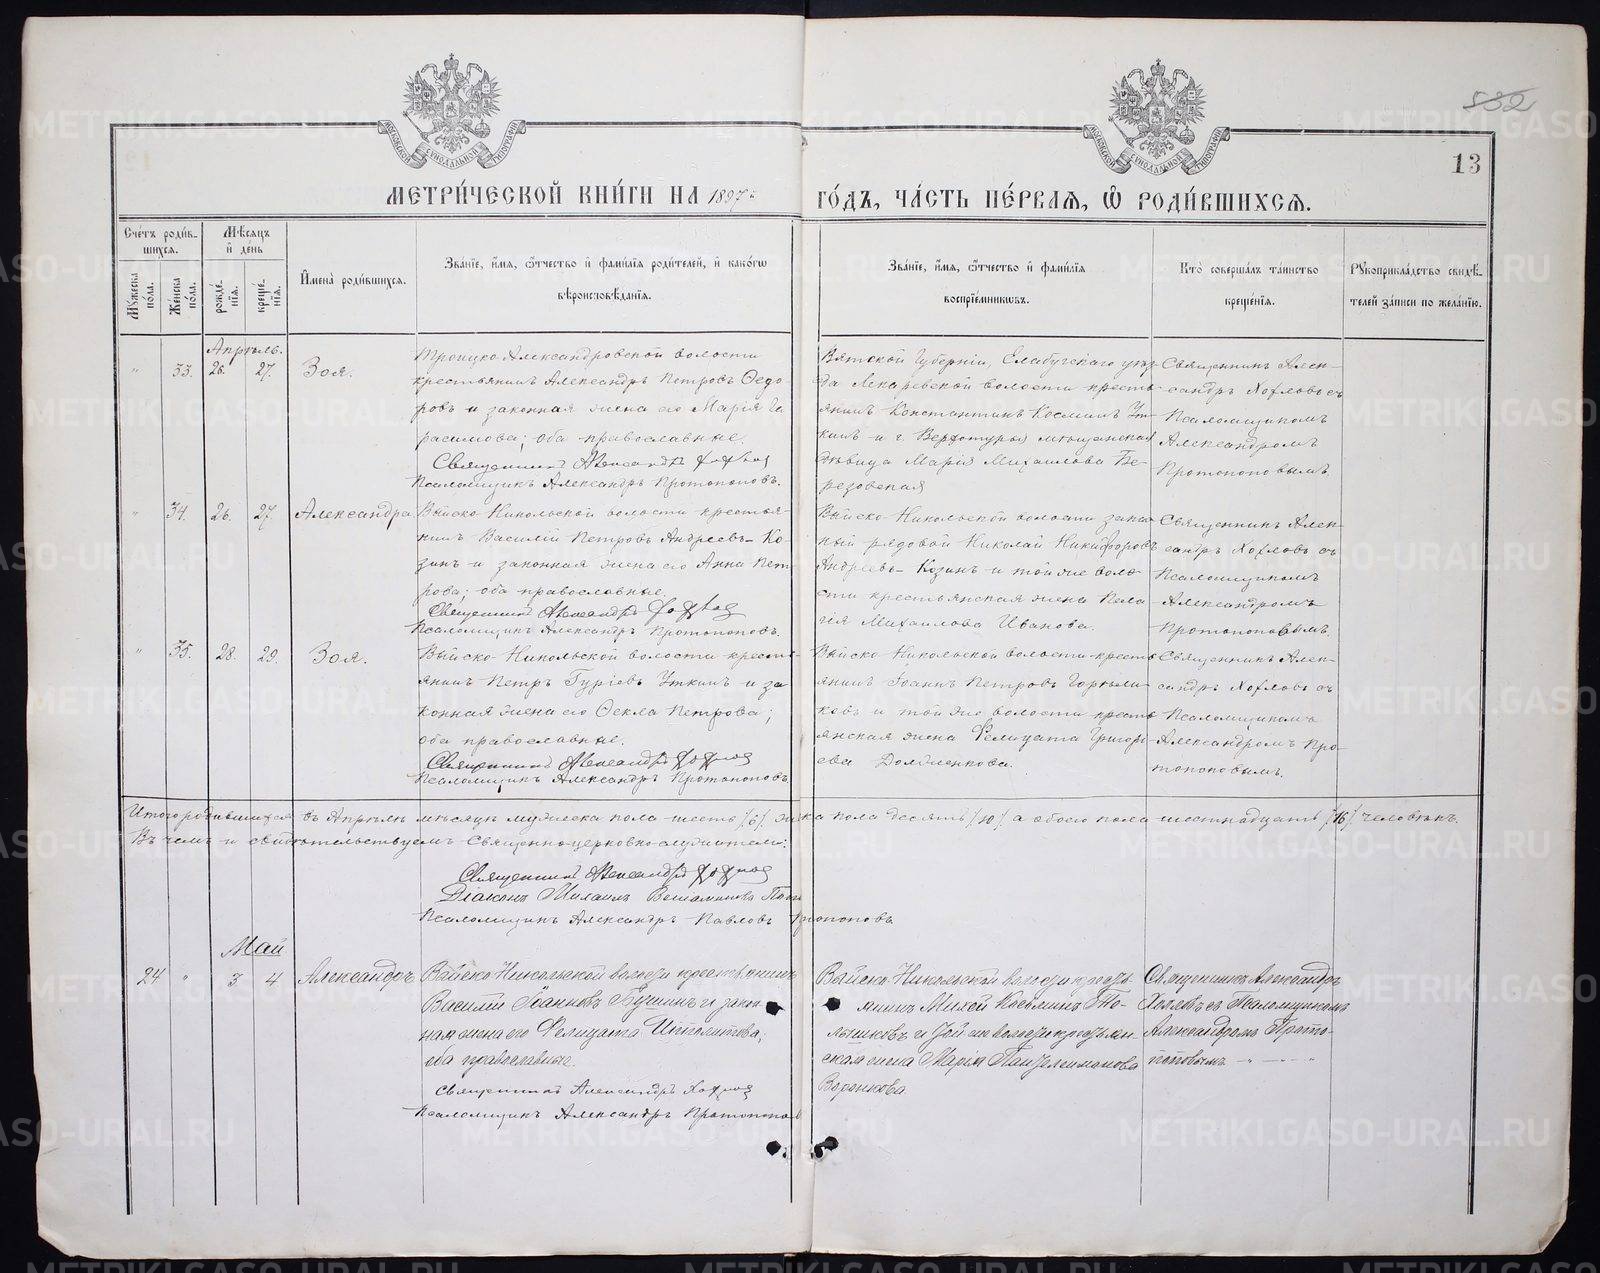 832
13
МОСКОВСКОЙ СѴНОДАЛЬНОЙ ТИПОГРАФІИ
МОСКОВСКОЙ СѴНОДАЛЬНОЙ ТИПОГРАФІИ
МЕТРИ́ЧЕСКОЙ КНИ́ГИ НА 1897 г. ГО́ДЪ, ЧА́СТЬ ПЕ́РВАѦ, Ѡ҆ РОДИ́ВШИХСѦ.
Сче́тъ роди́в-
шихсѧ.
Мꙋ́жеска по́ла.
Же́нска по́ла.
Мѣ́сѧцъ
и҆ де́нь
рожде́-
нїѧ.
креще́-
нїѧ.
И҆мена̀ роди́вшихсѧ.
Зва́нїе, и҆́мѧ, ѻ҆́тчество и҆ фами́лїѧ роди́телей, и҆ како́гѡ
вѣроисповѣ́данїѧ.
Зва́нїе, и҆́мѧ, ѻ҆́тчество и҆ фами́лїѧ
воспрїе́мникѡвъ.
Кто̀ соверша́лъ та́инство
креще́нїѧ.
Рꙋкоприкла́дство свидѣ́-
телей за́писи по жела́нїю.
Апрѣль.
" 33. 26. 27. Зоя.
Троицко-Александровской волости
крестьянинъ Александръ Петровъ Ѳедо-
ровъ и законная жена его Марія Ге-
расимова; оба православные.
Священникъ Александръ Хохлов
Псаломщикъ Александръ Протопоповъ.
Вятской Губерніи, Елабужскаго уѣз-
да Лекаревской волости кресть-
янинъ Константинъ Косминъ Ут-
кинъ и г. Верхотурья мѣщанская
дѣвица Марія Михаилова Бе-
резовская
Священникъ Алек-
сандръ Хохловъ съ
Псаломщикомъ
Александромъ
Протопоповымъ
" 34. 26. 27. Александра
Выйско-Никольской волости крестья-
нинъ Василій Петровъ Андреевъ-Ко-
зинъ и законная жена его Анна Пет-
рова; оба православные.
Священникъ Александръ Хохлов
Псаломщикъ Александръ Протопоповъ.
Выйско-Никольской волости запас-
ный рядовой Николай Никифоровъ
Андреевъ-Козинъ и той же воло-
сти крестьянская жена Пела-
гія Михаилова Иванова.
Священникъ Алек-
сандръ Хохловъ съ
Псаломщикомъ
Александромъ
Протопоповымъ.
" 35. 28. 29. Зоя.
Выйско-Никольской волости кресть-
янинъ Петръ Гуріевъ Уткинъ и за-
конная жена его Ѳекла Петрова;
оба православные.
Священникъ Александръ Хохлов
Псаломщикъ Александръ Протопоповъ.
Выйско-Никольской волости кресть-
янинъ Іоаннъ Петровъ
и той же волости кресть-
янская жена Фелицата Григорі-
ева
Священникъ Алек-
сандръ Хохловъ съ
Псаломщикомъ
Александромъ Про-
топоповымъ.
Итого родившихся въ Апрѣлѣ мѣсяцѣ мужеска пола шесть /6/. женска пола десять /10/. а обоего пола шестнадцать /16/. человѣкъ.
Въ чемъ и свидѣтельствуемъ Священно-церковно-служители:
Священникъ Александръ Хохлов
Діаконъ Михаилъ
Псаломщикъ Александръ Павловъ Протопоповъ
Май
24 " 3 4 Александръ
Выйско-Никольской волости крестьянинъ
Василій Іоанновъ Бушинъ и закон-
ная жена его Фелицата Ипполитова;
оба православные.
Священникъ Александръ Хохлов
Псаломщикъ Александръ Протопопов
Выйско-Никольской волости кресть-
янинъ Михей Космин
и той же волости крестьян-
ская жена Марія Пантелеимонова
Воронкова.
Священникъ Александръ
Хохловъ съ Псаломщикомъ
Александромъ Прото-
поповымъ. " — "
METRIKI.GASO-URAL.RU